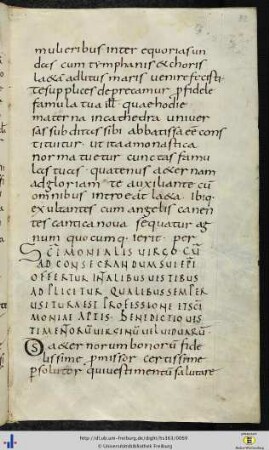 mulieribus inter equorias un
das cum tympanis & choris
laeta ad litus maris venire fecisti
te supplices deprecamur p fidele
famula tua ill quae hodie
materna in cathedra univer
sas subditas sibi abbatissa ee con
stituitur ut ita monastica
norma tuetur cunctas famu
las tuas quatenus aeternam
ad gloriam te auxiliante cu
omnibus introeat laeta ibiq
exultantes cum angelis canen
tes cantica nova sequatur ag
num quocumq ierit per
SCIMONIALIS VIRGO CU
AD CONSECRANDUM SUI EPI
OFFERTUR IN TALIBUS VESTIBUS
ADPLICITUR QUALIBUS SEMPER
USITURA EST PROFESSIONE ET SCI
MONIAE APTIS BENEDICTIO VES
TIMENTORU VIRGINU VEL VIDUARU
DS aeternorum bonorum fide
lissime pmissor certissime
psolutor qui vestimentum salutare
http://dl.ub.uni-freiburg.de/diglit/hs363/0069
© Universitätsbibliothek Freiburg